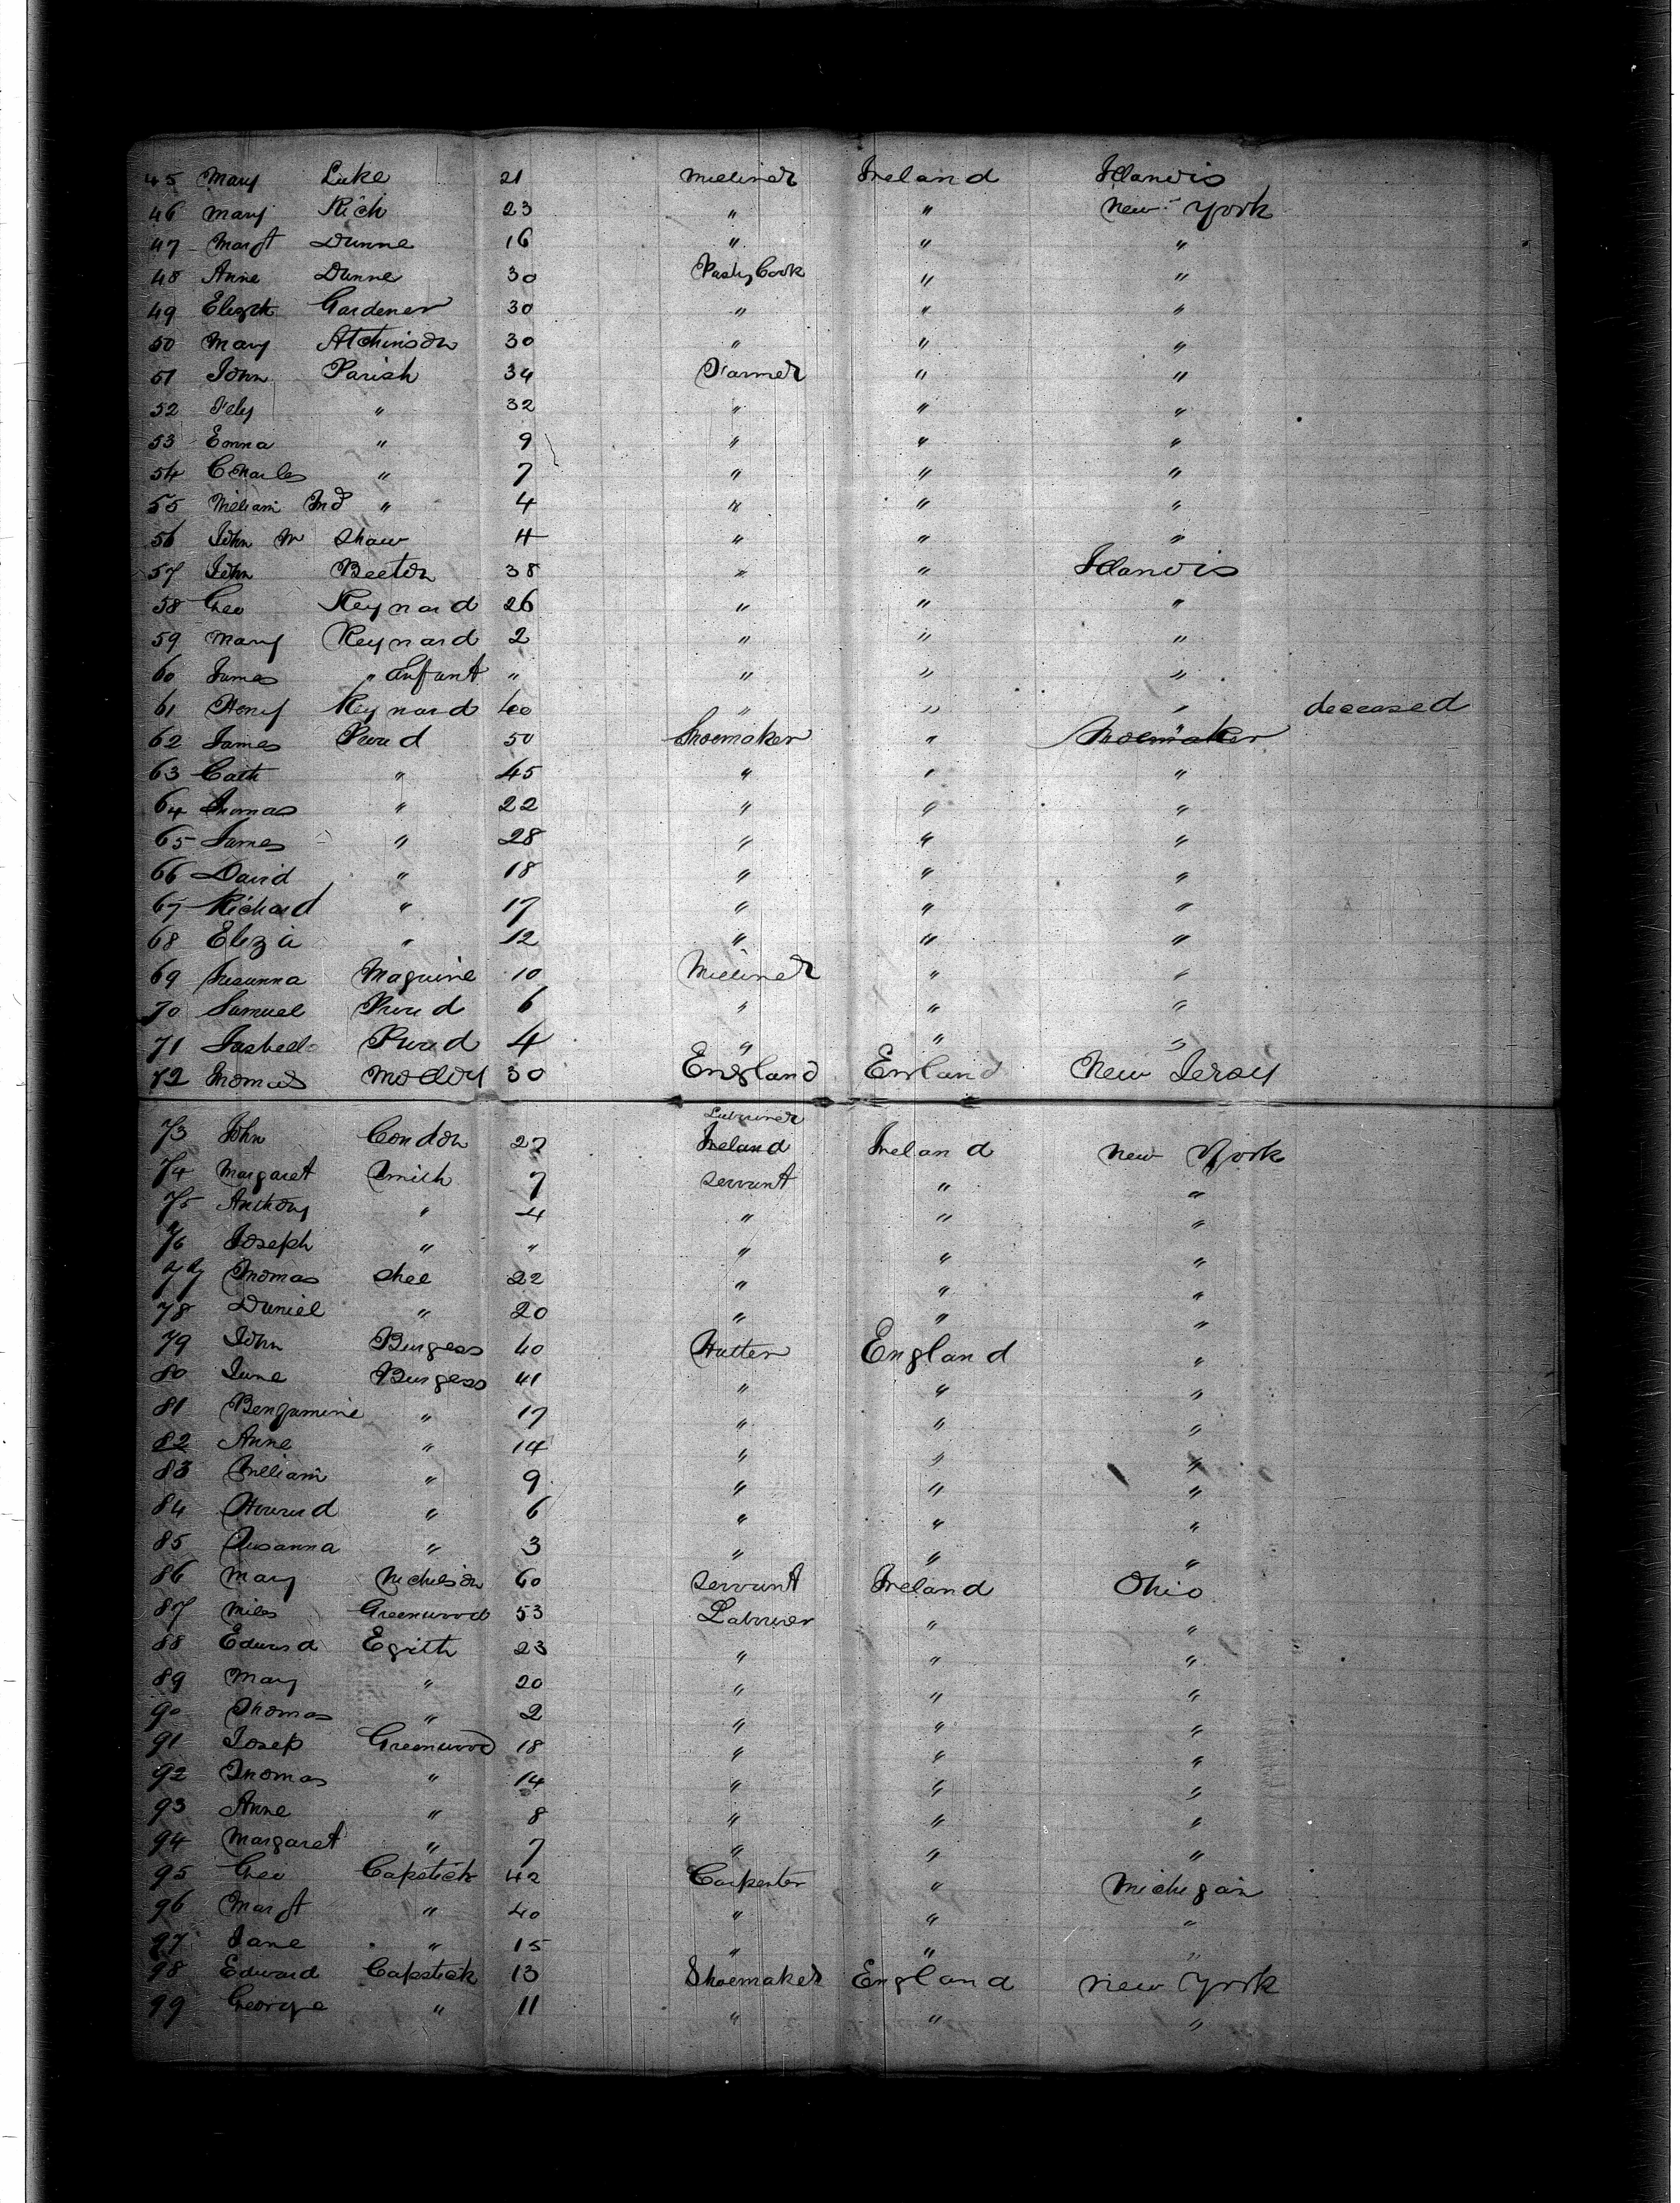 45 Mary Luke 21 Milliner Ireland Illanois
46 Mary Rich 23 " " New York
47 Margt Dunne 16 " " "
48 Anne Dunne 30 Pastry Cook " "
49 Elizth Gardener 30 " " "
50 Mary Atchinson 30 " " "
51 John Parish 34 Farmer " "
52 " 32 " " "
53 Emma " 9 " " "
54 Charles " 7 " " "
55 William " 4 " " "
56 John W Shaw 4 " " "
57 John Beeton 38 " " Illanois
58 Geo Reynard 26 " " "
59 Mary Reynard 2 " " "
60 James " Infant " " " "
61 Henry Reynard 40 " " " deceased
62 James Proud 50 Shoemaker " Shoemaker "
63 Cath " 45 " " "
64 Thomas " 22 " " "
65 James " 28 " " "
66 David " 18 " " "
67 Richard " 17 " " "
68 Eliza " 12 " " "
69 Susanna Maguire 10 Milliner " "
70 Samuel Proud 6 " " "
71 Proud 4 " " "
72 Thomas 30 England England New Jersy
73 John Condon 27 Labourer Ireland Ireland New York
74 Margaret Smith 7 Servant " "
75 Anthony " 4 " " "
76 Joseph " " " " "
77 Thomas Shee 22 " " "
78 Daniel " 20 " " "
79 John Burgess 40 Hatter England "
80 Jane Burgess 41 " " "
81 Bengamine " 17 " " "
82 Anne " 14 " " "
83 William " 9 " " "
84 Howard " 6 " " "
85 Susanna " 3 " " "
86 Mary Nichelson 60 Servant Ireland Ohio
87 Miles Greenwood 53 Labourer " "
88 Edward Egith 23 " " "
89 Mary " 20 " " "
90 Thomas " 2 " " "
91 Josep Greenwood 18 " " "
92 Thomas " 14 " " "
93 Anne " 8 " " "
94 Margaret " 7 " " "
95 Geo Capstick 42 Carpenter " Michigan
96 Margt " 40 " " "
97 Jane " 15 " " "
98 Edward Capstick 13 Shoemaker England New York
99 George " 11 " " "